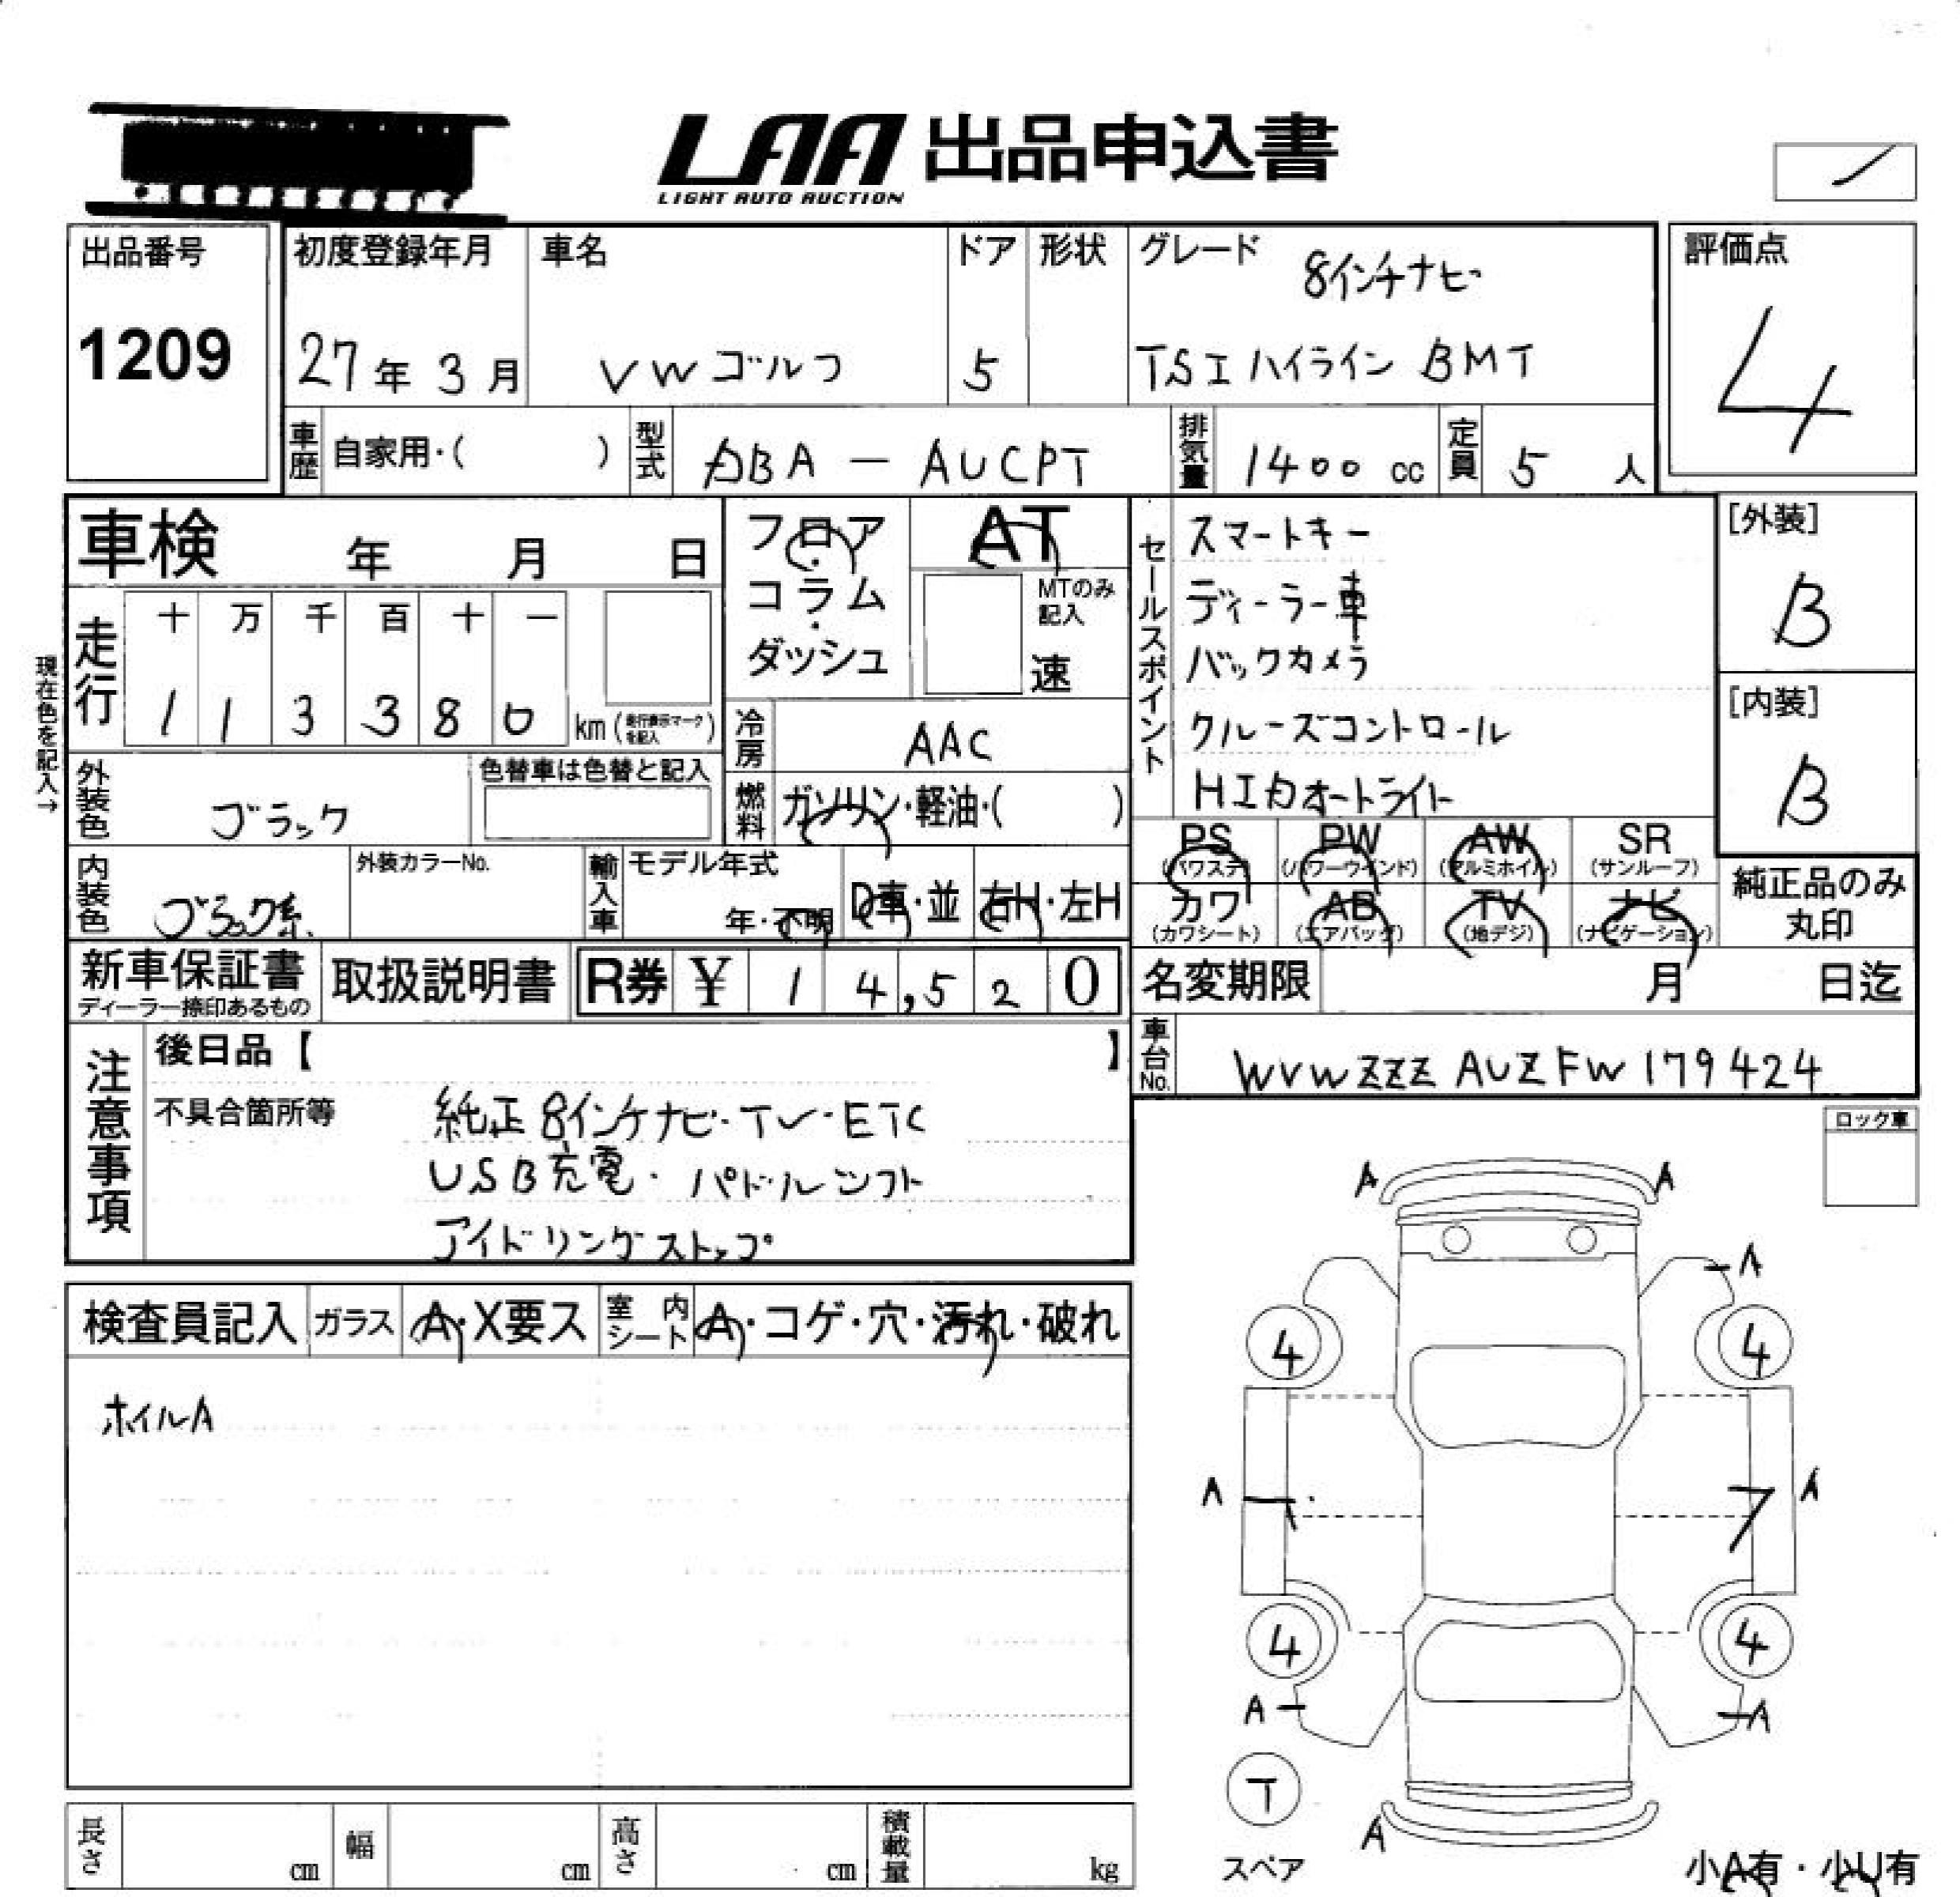 LAA 出品申込書
LIGHT AUTO AUCTION
出品番号
1209
初度登録年月
27年 3月
車名
VWゴルフ
ドア
5
形状
グレード
8インチナビ
TSI ハイライン BMT
評価点
4
車歴 自家用・( )
型式 ABA - AUCPT
排気量 1400 cc
定員 5 人
車検 年 月 日
フロア・コラム・ダッシュ
AT
MTのみ記入
速
セールスポイント
スマートキー
ディーラー車
バックカメラ
クルーズコントロール
HID オートライト
[外装]
B
[内装]
B
現在色を記入→
走行
十 万 千 百 十 一
1 1 3 3 8 0 km (走行表示マークを記入)
冷房 AAC
外装色 ブラック
色替車は色替と記入
燃料 ガソリン・軽油・( )
PS (パワステ)
PW (パワーウインド)
AW (アルミホイル)
SR (サンルーフ)
カワ (カワシート)
AB (エアバッグ)
TV (地デジ)
ナビ (ナビゲーション)
純正品のみ丸印
内装色 ブラック系
外装カラーNo.
輸入車 モデル年式
年・不明
D車・並
右H・左H
新車保証書
ディーラー捺印あるもの
取扱説明書
R券 ¥ 1 4,5 2 0
名変期限 月 日迄
車台No. WVWZZZ AUZ FW 179424
注意事項
後日品【 】
不具合箇所等
純正 8インチナビ・TV・ETC
USB充電・パドルシフト
アイドリングストップ
ロック車
検査員記入 ガラス A・X要ス 室内シート A・コゲ・穴・汚れ・破れ
ホイルA
A A
A
4 4
A A
4 4
A A
T
スペア
A
小A有・小U有
長さ cm 幅 cm 高さ cm 積載量 kg